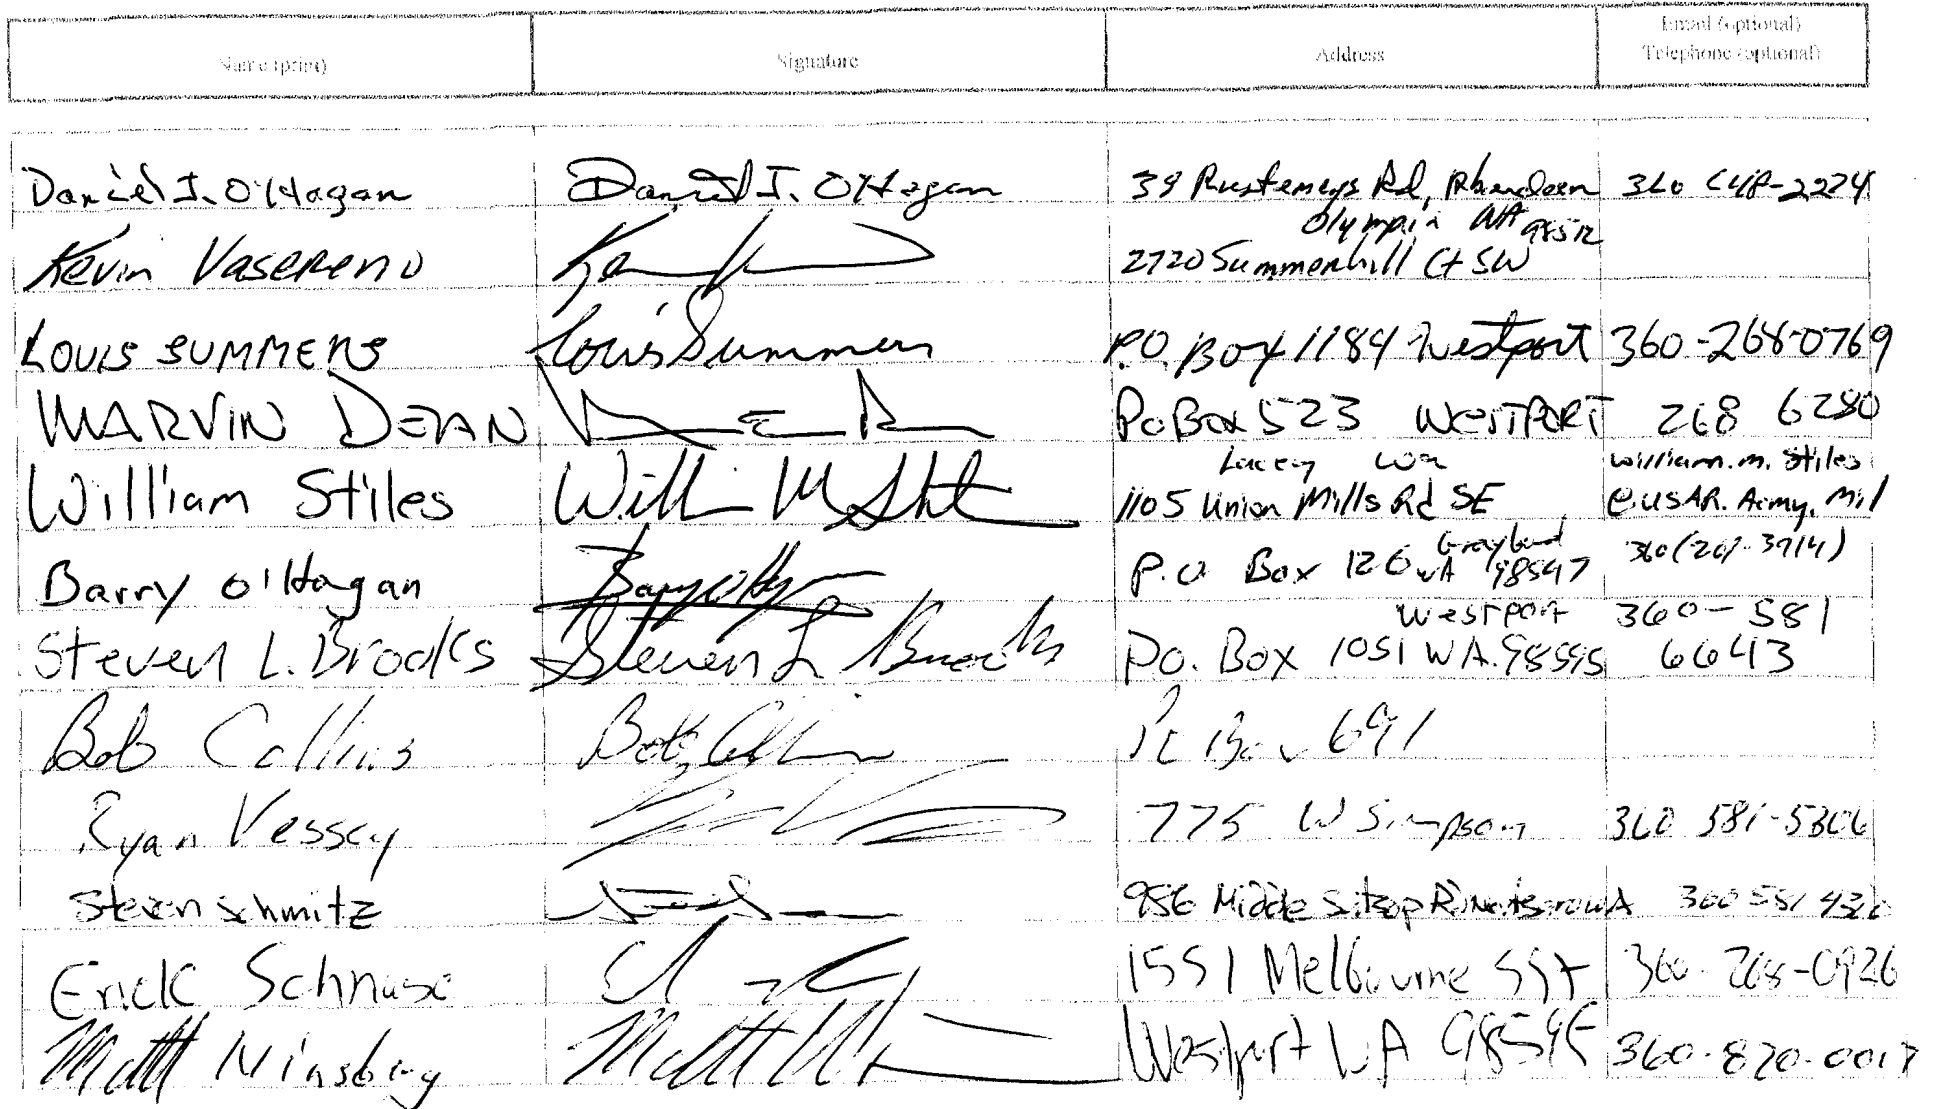 Name (print) Signature Address Email (optional)
Telephone (optional)
Daniel J. O'Hagan Daniel J. O'Hagan 39 Rd, 360
Kevin Vasereno Olympia WA 98512
2720 Summerhill Ct SW
LOUIS SUMMERS Louis Summers P.O. Box 1184 Westport 360-268-0769
MARVIN DEAN PO Box 523 WESTPORT 268 6280
William Stiles Lacey Wa william.m.Stiles
1105 Union Mills Rd SE @USAR.Army.Mil
Barry O'Hagan Barry O'Hagan P.O Box 126 Grayland WA 98547 360(267-3714)
Steven L. Brooks Steven L Brooks Westport 360-581
P.O. Box 1051 WA. 98595 6643
Bob Collins Bob Collins Po Box 691
Ryan Vessey 775 W Simpson 360 581-5306
Steven Schmitz 956 Middle 360
Erick Schnase 1551 Melbourne SSt 360-268-0926
Matt Matt Westport WA 98595 360-870-0017